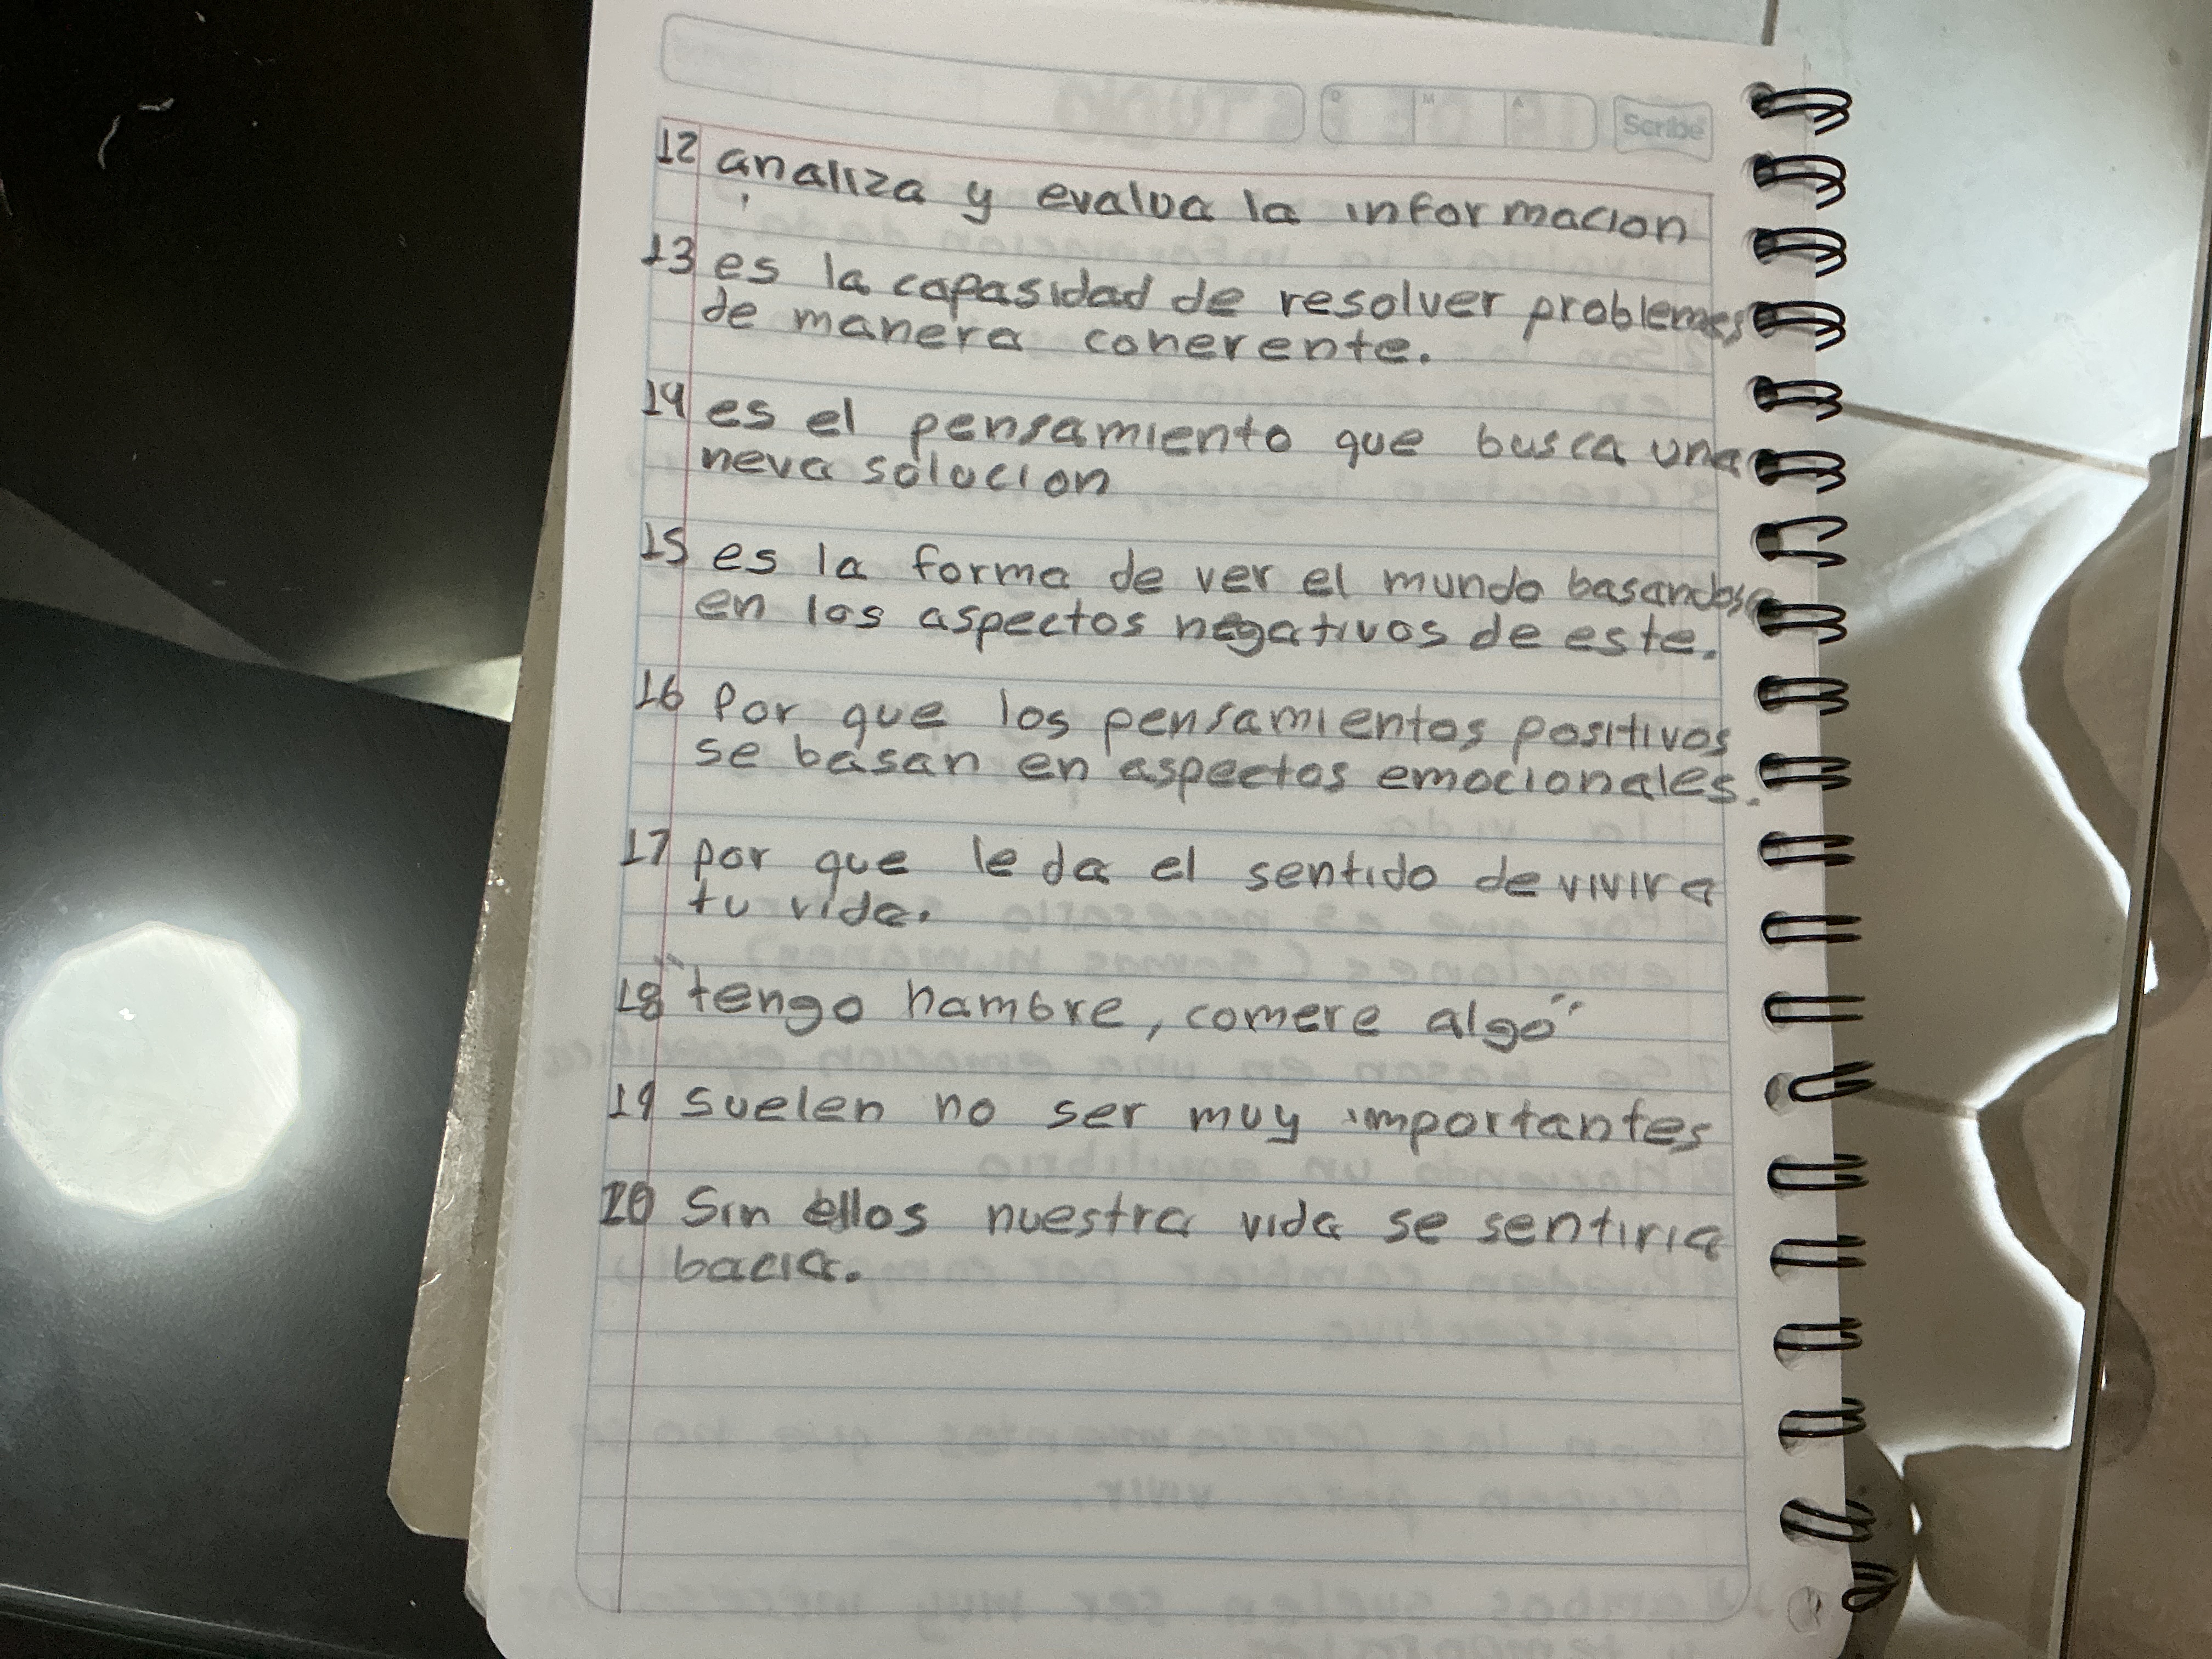 Scribe
D M A
12 analiza y evalua la informacion
13 es la capasidad de resolver problemas
de manera coherente.
14 es el pensamiento que busca una
neva solucion
15 es la forma de ver el mundo basandose
en los aspectos negativos de este.
16 Por que los pensamientos positivos
se basan en aspectos emocionales.
17 por que le da el sentido de vivir a
tu vida.
18 "tengo hambre, comere algo"
19 suelen no ser muy importantes
20 Sin ellos nuestra vida se sentiria
bacia.